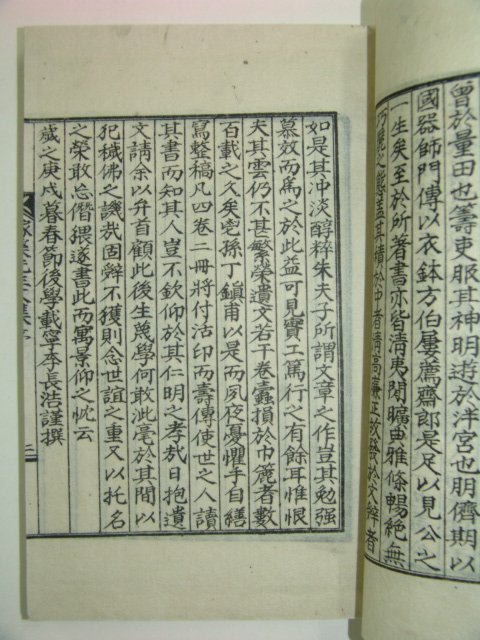 曾於量田也籌吏服其神明遊於泮宮也朋儕期以
國器師門傳以衣鉢方伯屢薦齋郎是足以見公之
一生矣至於所著書亦皆淸夷閒曠典雅條暢絶無
之態盖其積於中者淸高廉正故發於文辭者
如是其沖淡醇粹朱夫子所謂文章之作豈其勉强
慕效而爲之於此益可見實工篤行之有餘耳惟恨
夫其雲仍不甚繁榮遺文若干卷蠹損於巾簏者數
百載之久矣后孫丁鎭甫以是而夙夜憂懼手自繕
寫整稿凡四卷二冊將付活印而壽傳使世之人讀
其書而知其人豈不欽仰於其仁明之孝哉日抱遺
文請余以弁首顧此後生蔑學何敢泚毫於其間以
犯穢佛之譏哉固辭不獲則念世誼之重又以托名
之榮敢忘僭猥遂書此而寓景仰之忱云
歲之庚戌暮春節後學載寧李長浩謹撰